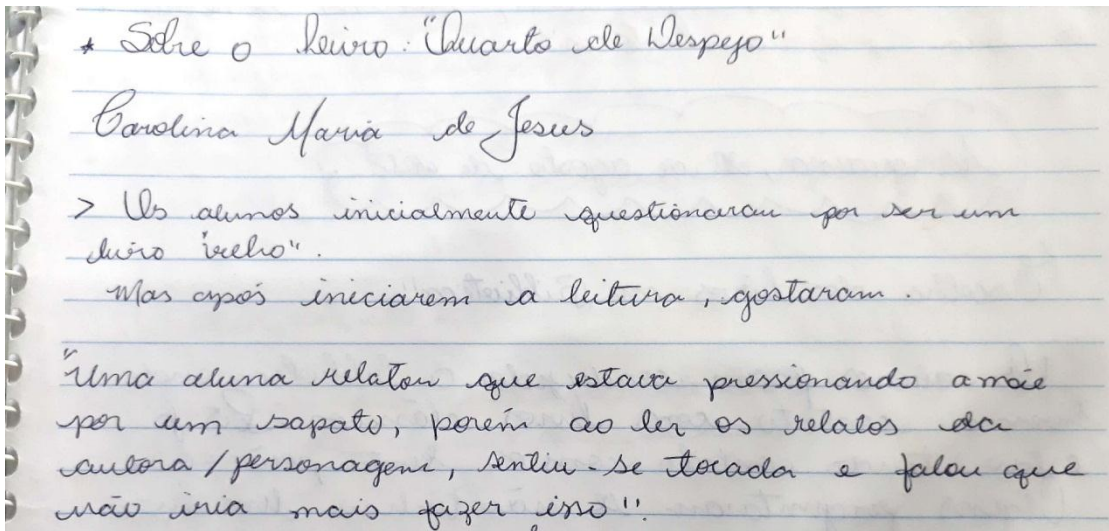 * Sobre o livro: "Quarto de Despejo"
Carolina Maria de Jesus
> Os alunos inicialmente questionaram por ser um
livro "velho".
Mas após iniciarem a leitura, gostaram.
"Uma aluna relatou que estava pressionando a mãe
por um sapato, porém ao ler os relatos da
autora/personagem, sentiu-se tocada e falou que
não iria mais fazer isso".